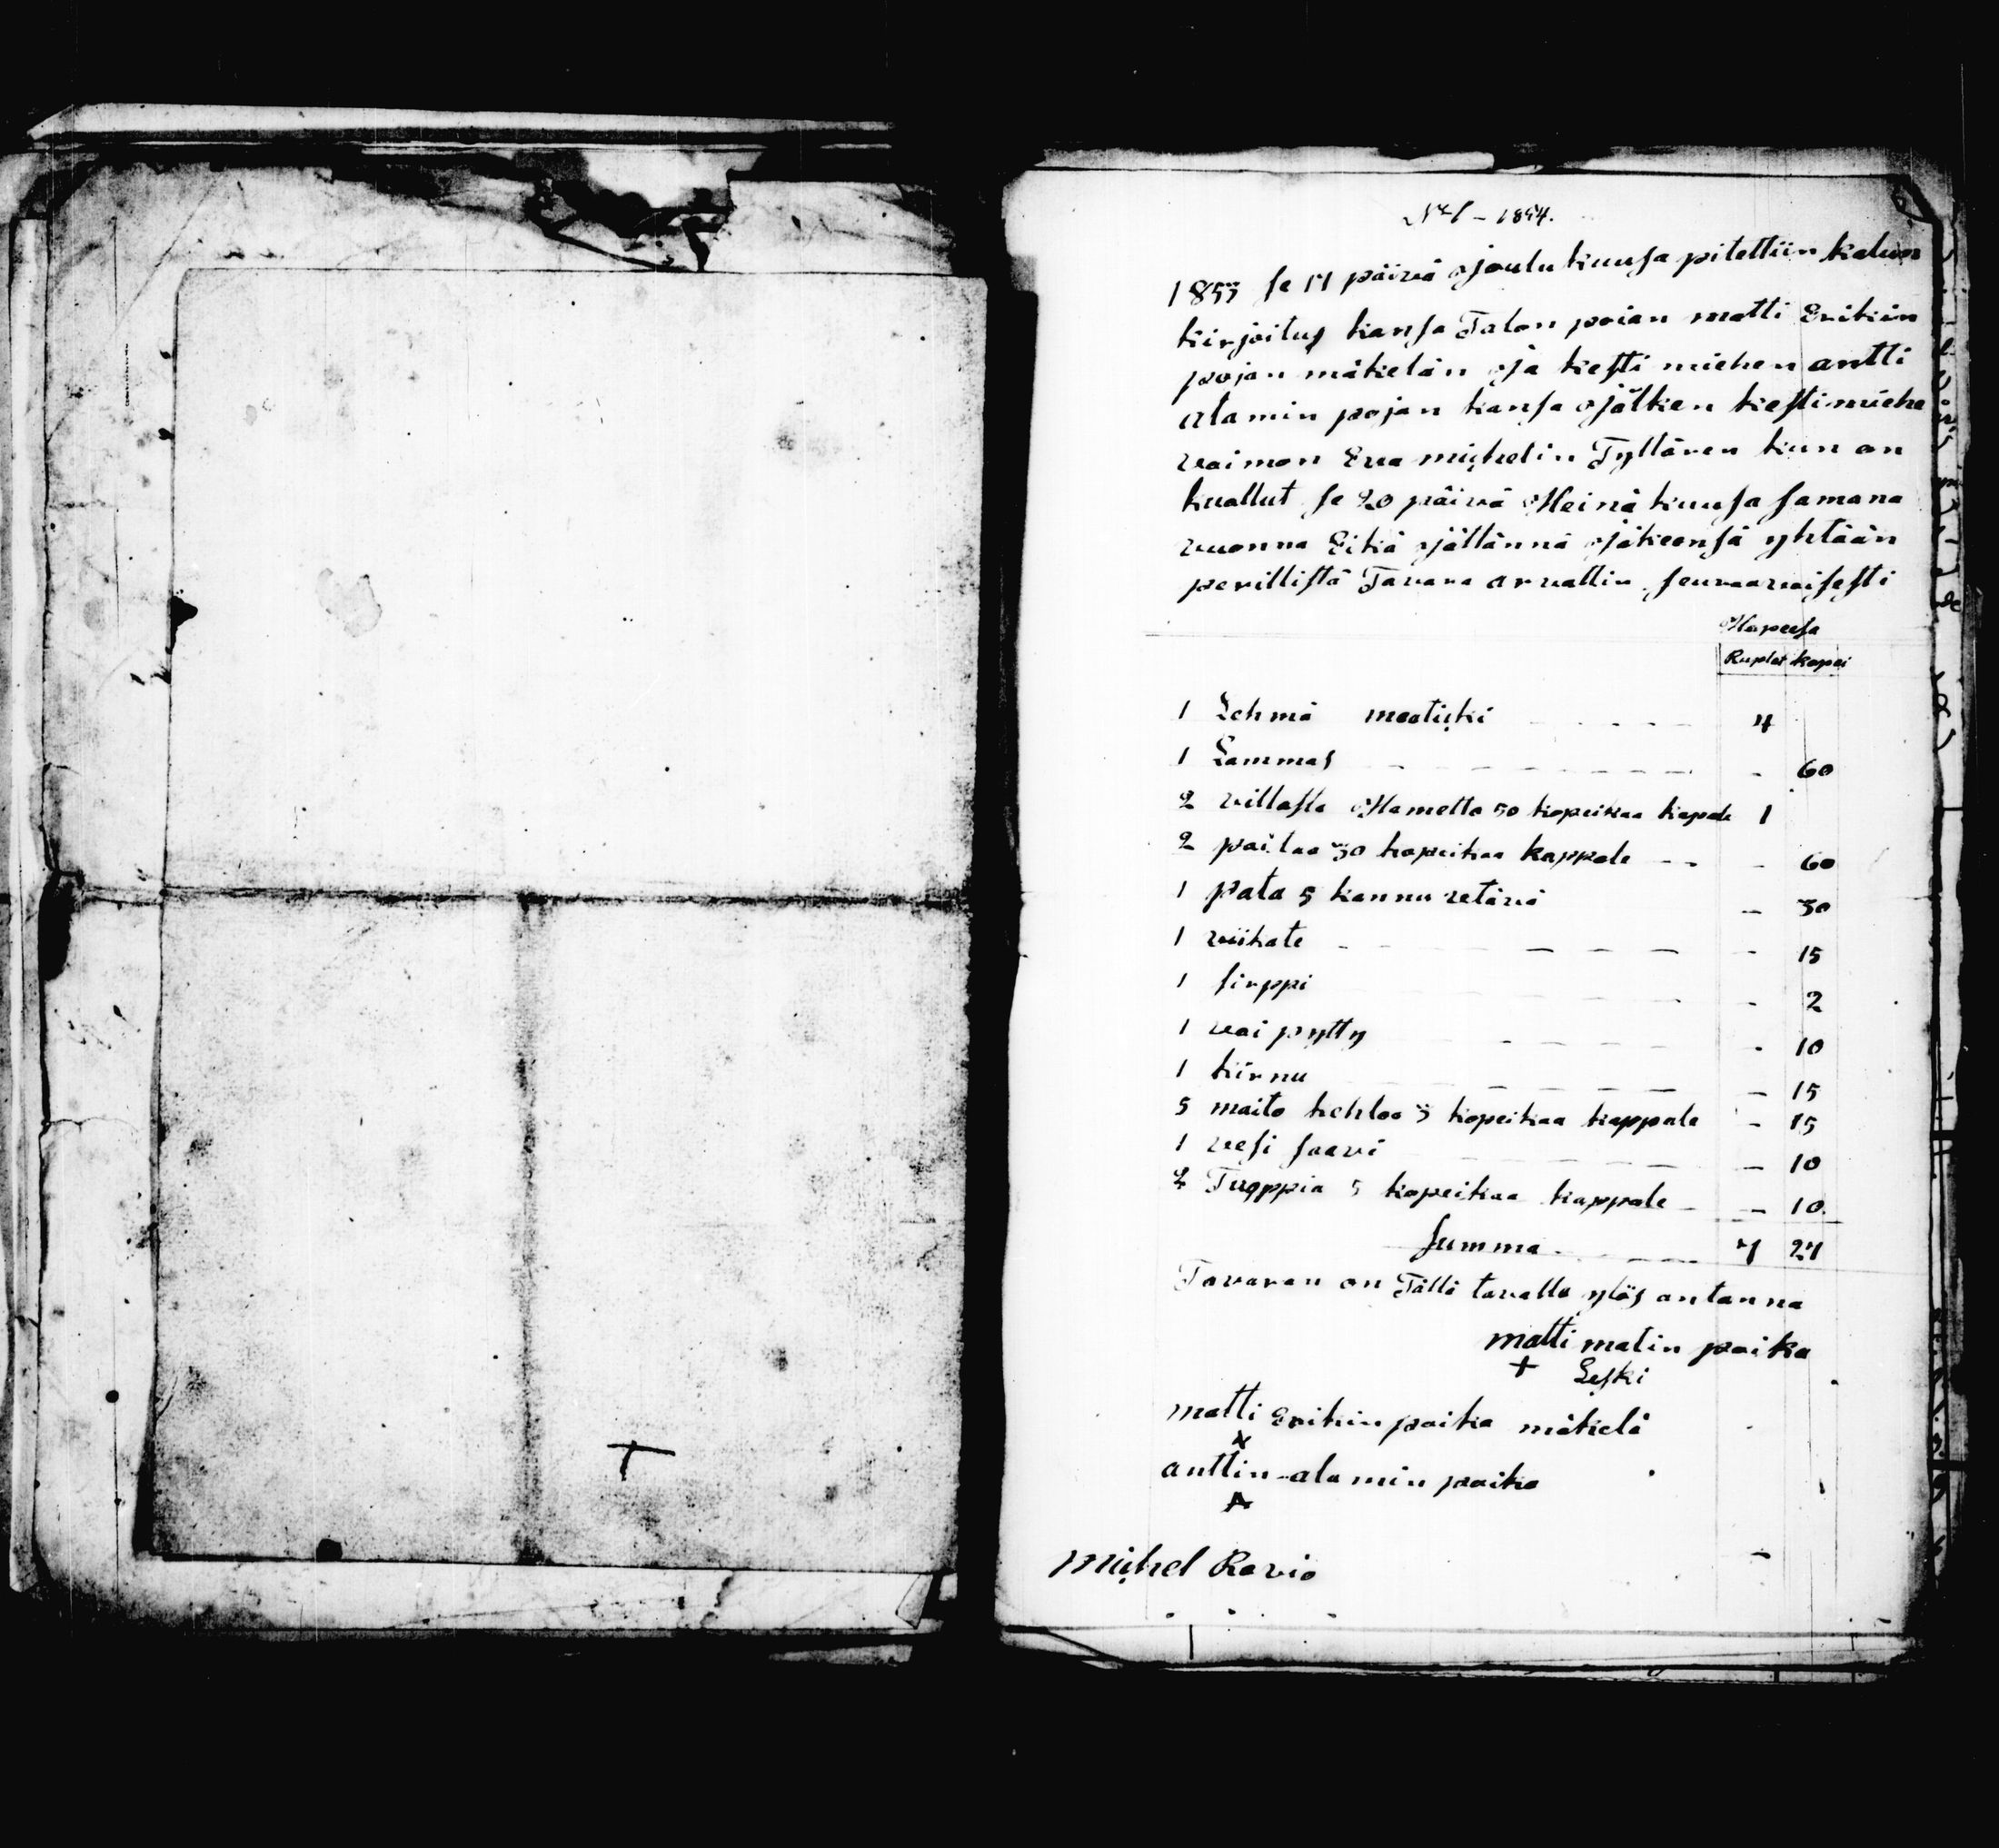 No 1 - 1854.
1853 se 11 päivä joulu kuusa pitettiin kalun
kirjoitus kansa Talon poian matti Erikin
pojan mäkelän ja kesti miehen antti
atamin pojan kansa jälken kestimiehe
vaimon Eva michelin Tyttären kun on
kuallut se 20 päivä Heinä kuusa samana
vuonna Eikä jättännä jäkeensä yhtään
perillistä Tavara arvattin seuraavaisesti
Hopeesa
Ruplat kopei
1 Lehmä 4
1 Lammas - 60
2 villasta Hametta 50 kopeikaa kapale 1
2 paitaa 30 kopeikaa kappale - 60
1 pata 5 kannu vetävä - 30
1 viikate - 15
1 sirppi - 2
1 voi pytty - 10
1 kirnu - 15
5 maito kehloa 3 kopeikaa kappale - 15
1 vesi saavi - 10
2 Tuoppia 5 kopeikaa kappale - 10.
summa 7 27
Tavaran on Tällä tavalla ylös antanna
matti matin poika
+ Leski
matti Erikin poika mäkelä
x
anttin atamin poika
Michel Ravio